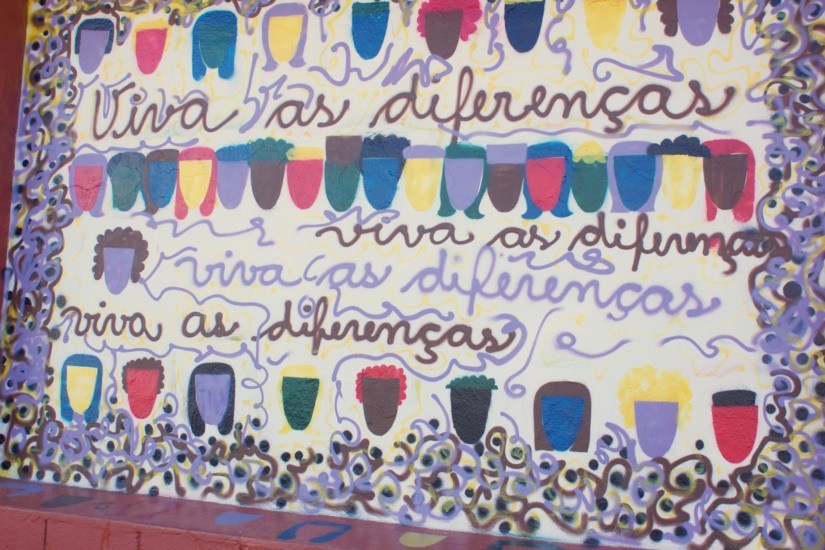 Viva as diferenças
viva as diferenças
viva as diferenças
viva as diferenças